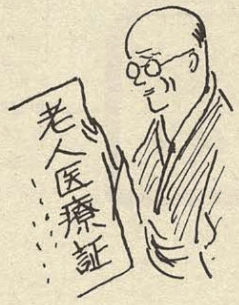 老人医療証